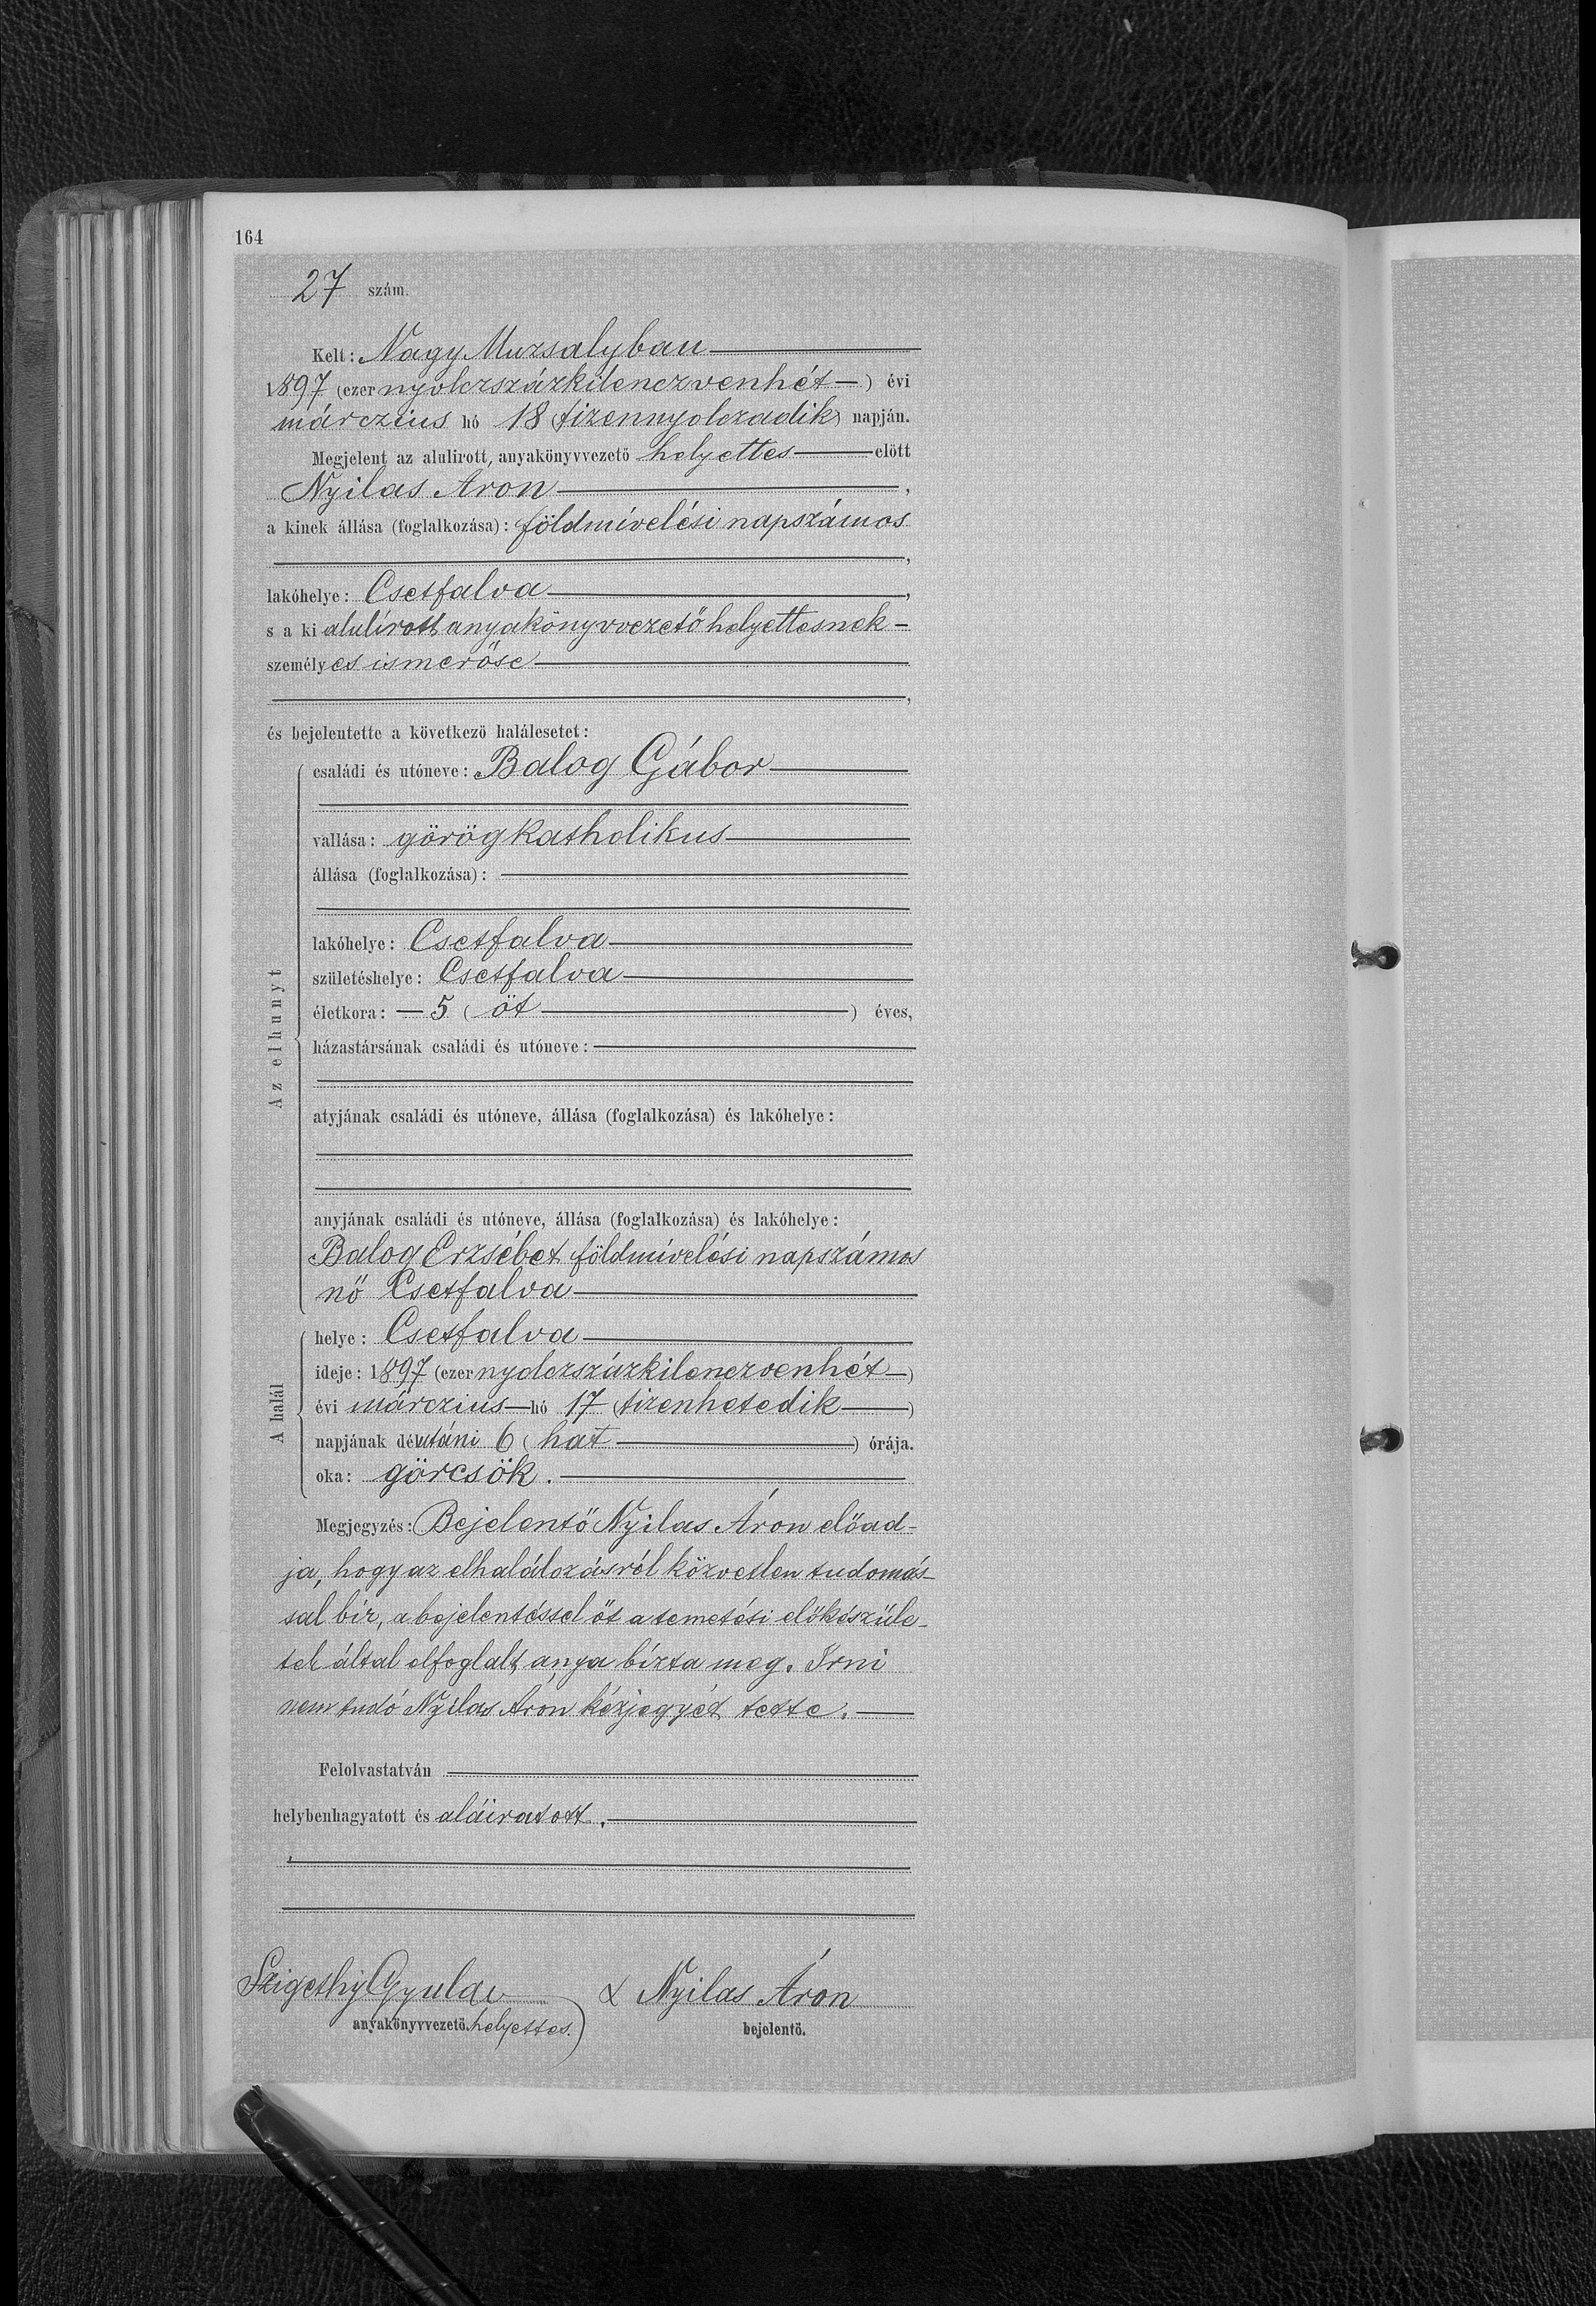 164
27 szám.
Kelt: Nagy Muzsalyban
1897 (ezer nyolczszázkilenczvenhét) évi
márczius hó 18 (tizennyolczadik) napján.
Megjelent az alulirott, anyakönyvvezető helyettes előtt
Nyilas Áron,
a kinek állása (foglalkozása): földmívelési napszámos
,
lakóhelye: Csetfalva,
s a ki alulírott anyakönyvvezető helyettesnek
személyes ismerőse
,
és bejelentette a következő halálesetet:
Az elhunyt
családi és utóneve: Balog Gábor
vallása: görög katholikus
állása (foglalkozása):
lakóhelye: Csetfalva
születéshelye: Csetfalva
életkora: 5 (öt) éves,
házastársának családi és utóneve:
atyjának családi és utóneve, állása (foglalkozása) és lakóhelye:
anyjának családi és utóneve, állása (foglalkozása) és lakóhelye:
Balog Erzsébet földmívelési napszámos
nő Csetfalva
A halál
helye: Csetfalva
ideje: 1897 (ezer nyolczszázkilenczvenhét)
évi márczius hó 17 (tizenhetedik)
napjának délutáni 6 (hat) órája.
oka: görcsök.
Megjegyzés: Bejelentő Nyilas Áron előad-
ja, hogy az elhalálozásról közvetlen tudomás-
sal bír, a bejelentéssel őt a temetési előkészüle-
tek által elfoglalt anya bízta meg. Irni
nem tudó Nyilas Áron kézjegyét tette.
Felolvastatván
helybenhagyatott és aláiratott.
Szigethy Gyula x Nyilas Áron
anyakönyvvezető. helyettes. bejelentő.